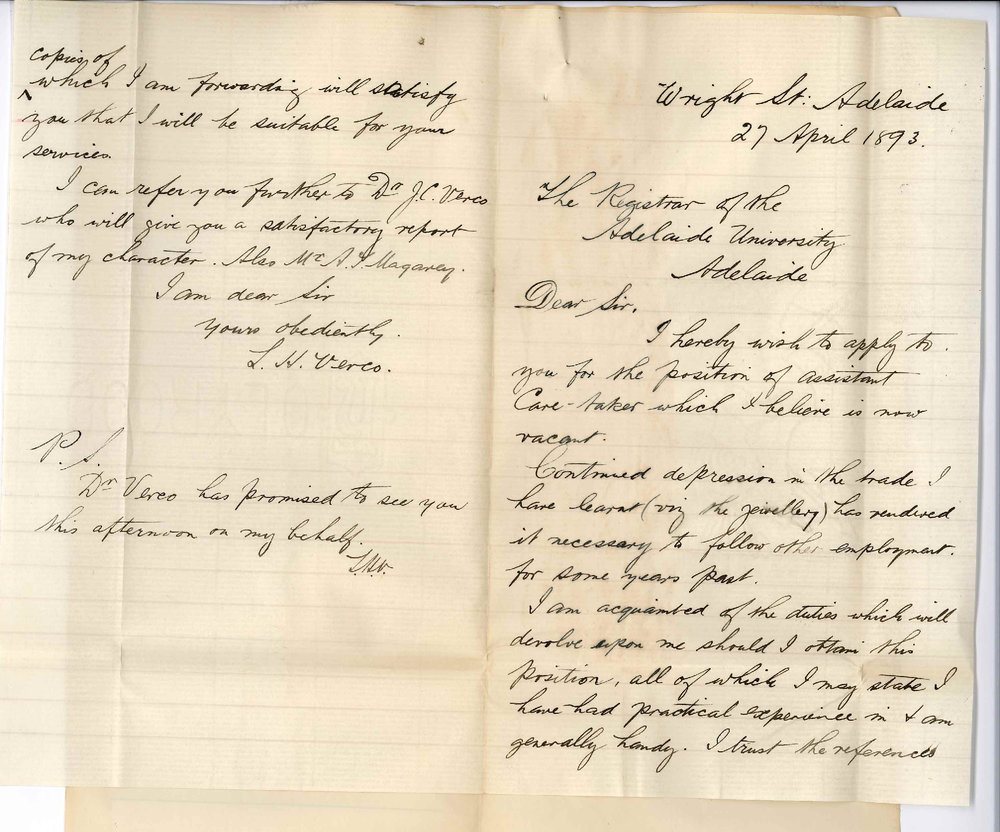 Wright St. Adelaide
27 April 1893.
The Registrar of the
Adelaide University
Adelaide
Dear Sir,
I hereby wish to apply to
you for the position of assistant
Care-taker which I believe is now
vacant.
Continued depression in the trade I
have learnt (viz the jewellery) has rendered
it necessary to follow other employment.
for some years past.
I am acquainted of the duties which will
devolve upon me should I obtain this
position, all of which I may state I
have had practical experience in & am
generally handy. I trust the references
copies of
which I am forwarding will satisfy
you that I will be suitable for your
services.
I can refer you further to Dr J.C. Verco
who will give you a satisfactory report
of my character. Also Mr A. T. Magarey.
I am dear Sir
yours obediently.
L. H. Verco.
P. S.
Dr Verco has promised to see you
this afternoon on my behalf.
L.H.V.